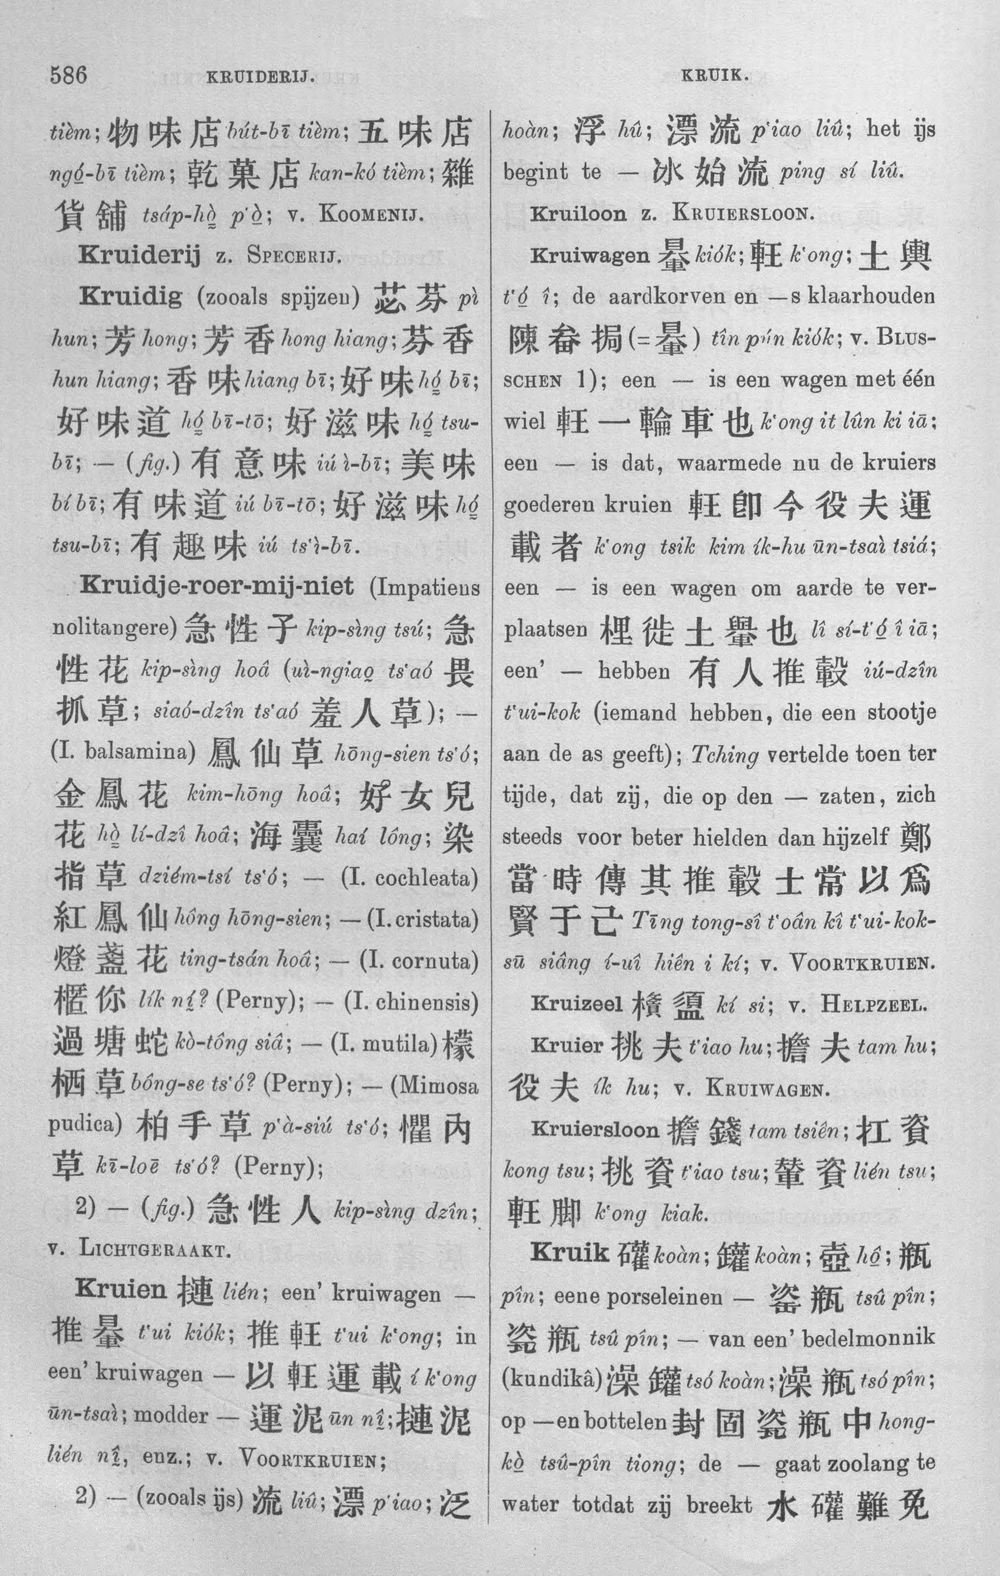 586
KRUIDERIJ.
KRUIK.
tièm; 物味店 bút-bī tièm; 五味店
ngó-bī tièm; 乾菓店 kan-kó tièm; 雜
貨舖 tsáp-hò p‘ò; v. KOOMENIJ.
Kruiderij z. SPECERIJ.
Kruidig (zooals spijzen) 苾芬 pì
hun; 芳 hong; 芳香 hong hiang; 芬香
hun hiang; 香味 hiang bī; 好味 hó bī;
好味道 hó bī-tō; 好滋味 hó tsu-
bī; — (fig.) 有意味 iú ì-bī; 美味
bí bī; 有味道 iú bī-tō; 好滋味 hó
tsu-bī; 有趣味 iú ts‘ì-bī.
Kruidje-roer-mij-niet (Impatiens
nolitangere) 急性子 kip-sìng tsú; 急
性花 kip-sìng hoâ (uì-ngiaọ ts‘aó 畏
抓草; siaó-dzîn ts‘aó 羞人草); —
(I. balsamina) 鳳仙草 hōng-sien ts‘ó;
金鳳花 kim-hōng hoâ; 好女兒
花 hò lí-dzî hoâ; 海囊 haí lóng; 染
指草 dziém-tsí ts‘ó; — (I. cochleata)
紅鳳仙 hông hōng-sien; — (I. cristata)
燈盞花 ting-tsán hoâ; — (I. cornuta)
櫃你 lík ní? (Perny); — (I. chinensis)
過塘蛇 kò-tông siâ; — (I. mutila) 檬
栖草 bông-se ts‘ó? (Perny); — (Mimosa
pudica) 柏手草 p‘à-siú ts‘ó; 懼內
草 kī-loē ts‘ó? (Perny);
2) — (fig.) 急性人 kip-sìng dzîn;
v. LICHTGERAAKT.
Kruien 摙 lién; een’ kruiwagen —
推轝 t‘ui kiók; 推軖 t‘ui k‘ong; in
een’ kruiwagen — 以軖運載 í k‘ong
ūn-tsaì; modder — 運泥 ūn nî; 摙泥
lién nî, enz.; v. VOORTKRUIEN;
2) — (zooals ijs) 流 liû; 漂 p‘iao; 泛
hoàn; 浮 hû; 漂流 p‘iao liû; het ijs
begint te — 冰始流 ping sí liû.
Kruiloon z. KRUIERSLOON.
Kruiwagen 轝 kiók; 軖 k‘ong; 土輿
t‘ó î; de aardkorven en —s klaarhouden
陳畚挶 (= 轝) tîn pún kiók; v. BLUS-
SCHEN 1); een — is een wagen met één
wiel 軖一輪車也 k‘ong it lûn ki iā;
een — is dat, waarmede nu de kruiers
goederen kruien 軖卽今役夫運
載者 k‘ong tsik kim ík-hu ūn-tsaì tsiá;
een — is een wagen om aarde te ver-
plaatsen 梩徙土轝也 lî sí-t‘ó î iā;
een’ — hebben 有人推轂 iú-dzîn
t‘ui-kok (iemand hebben, die een stootje
aan de as geeft); Tching vertelde toen ter
tijde, dat zij, die op den — zaten, zich
steeds voor beter hielden dan hijzelf 鄭
當時傳其推轂士常以爲
賢于己 Tīng tong-sî t‘oân kî t‘ui-kok-
sū siâng í-uî hiên i kí; v. VOORTKRUIEN.
Kruizeel kí si; v. HELPZEEL.
Kruier 挑夫 t‘iao hu; 擔夫 tam hu;
役夫 ík hu; v. KRUIWAGEN.
Kruiersloon 擔錢 tam tsiên; 扛資
kong tsu; 挑資 t‘iao tsu; 輦資 lién tsu;
軖脚 k‘ong kiak.
Kruik 礶 koàn; 罐 koàn; 壺 hô; 瓶
pîn; eene porseleinen — 瓷瓶 tsû pîn;
瓷瓶 tsû pîn; — van een’ bedelmonnik
(kundikâ) 澡罐 tsó koàn; 澡瓶 tsó pîn;
op — en bottelen 封固瓷瓶中 hong-
kò tsû-pîn tiong; de — gaat zoolang te
water totdat zij breekt 水礶難免